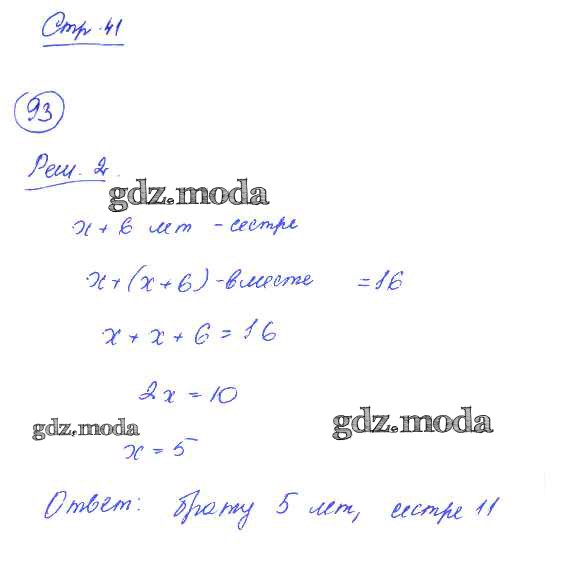 Стр. 41
93
Реш. 2.
gdz.moda
x + 6 лет - сестре
x + (x + 6) - вместе = 16
x + x + 6 = 16
2x = 10
gdz.moda
gdz.moda
x = 5
Ответ: брату 5 лет, сестре 11